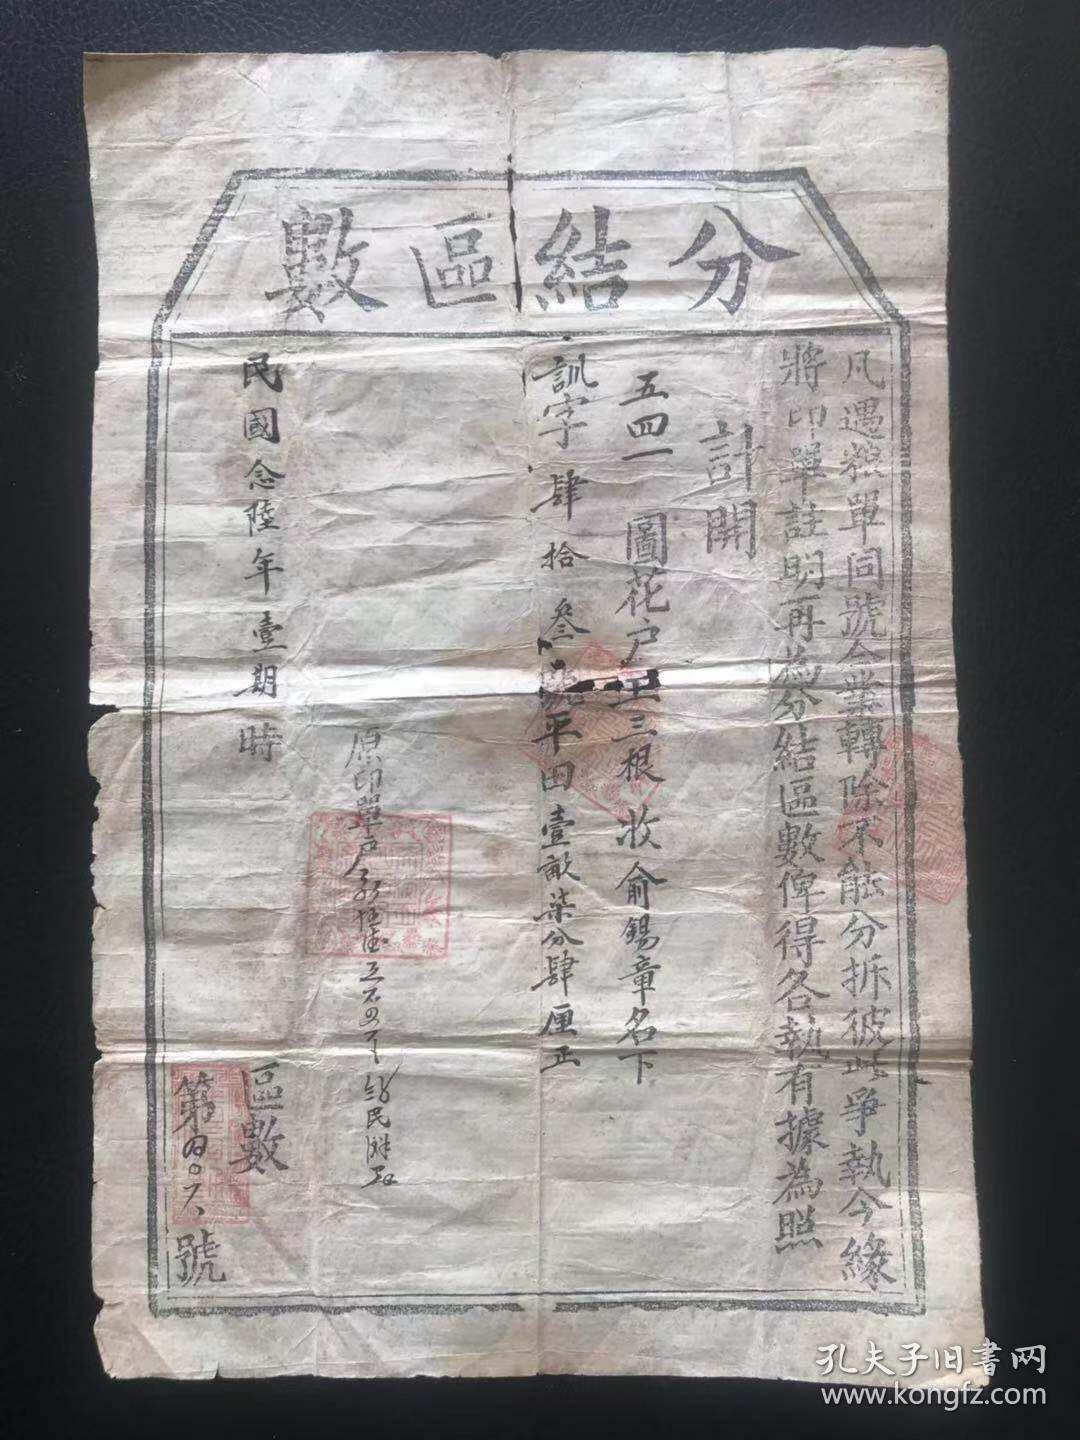 分結區數
凡遇粮單同號仝業轉除不能分拆彼此爭執今緣
將印單註明再為分結區數俾得各執有據為照
計開
五四一圖花户王三根收俞錫章名下
訓字肆拾叁號平田壹畝柒分肆厘正
原印單户
民國念陸年壹期時
區數
第四〇六號
孔夫子旧書网
www.kongfz.com